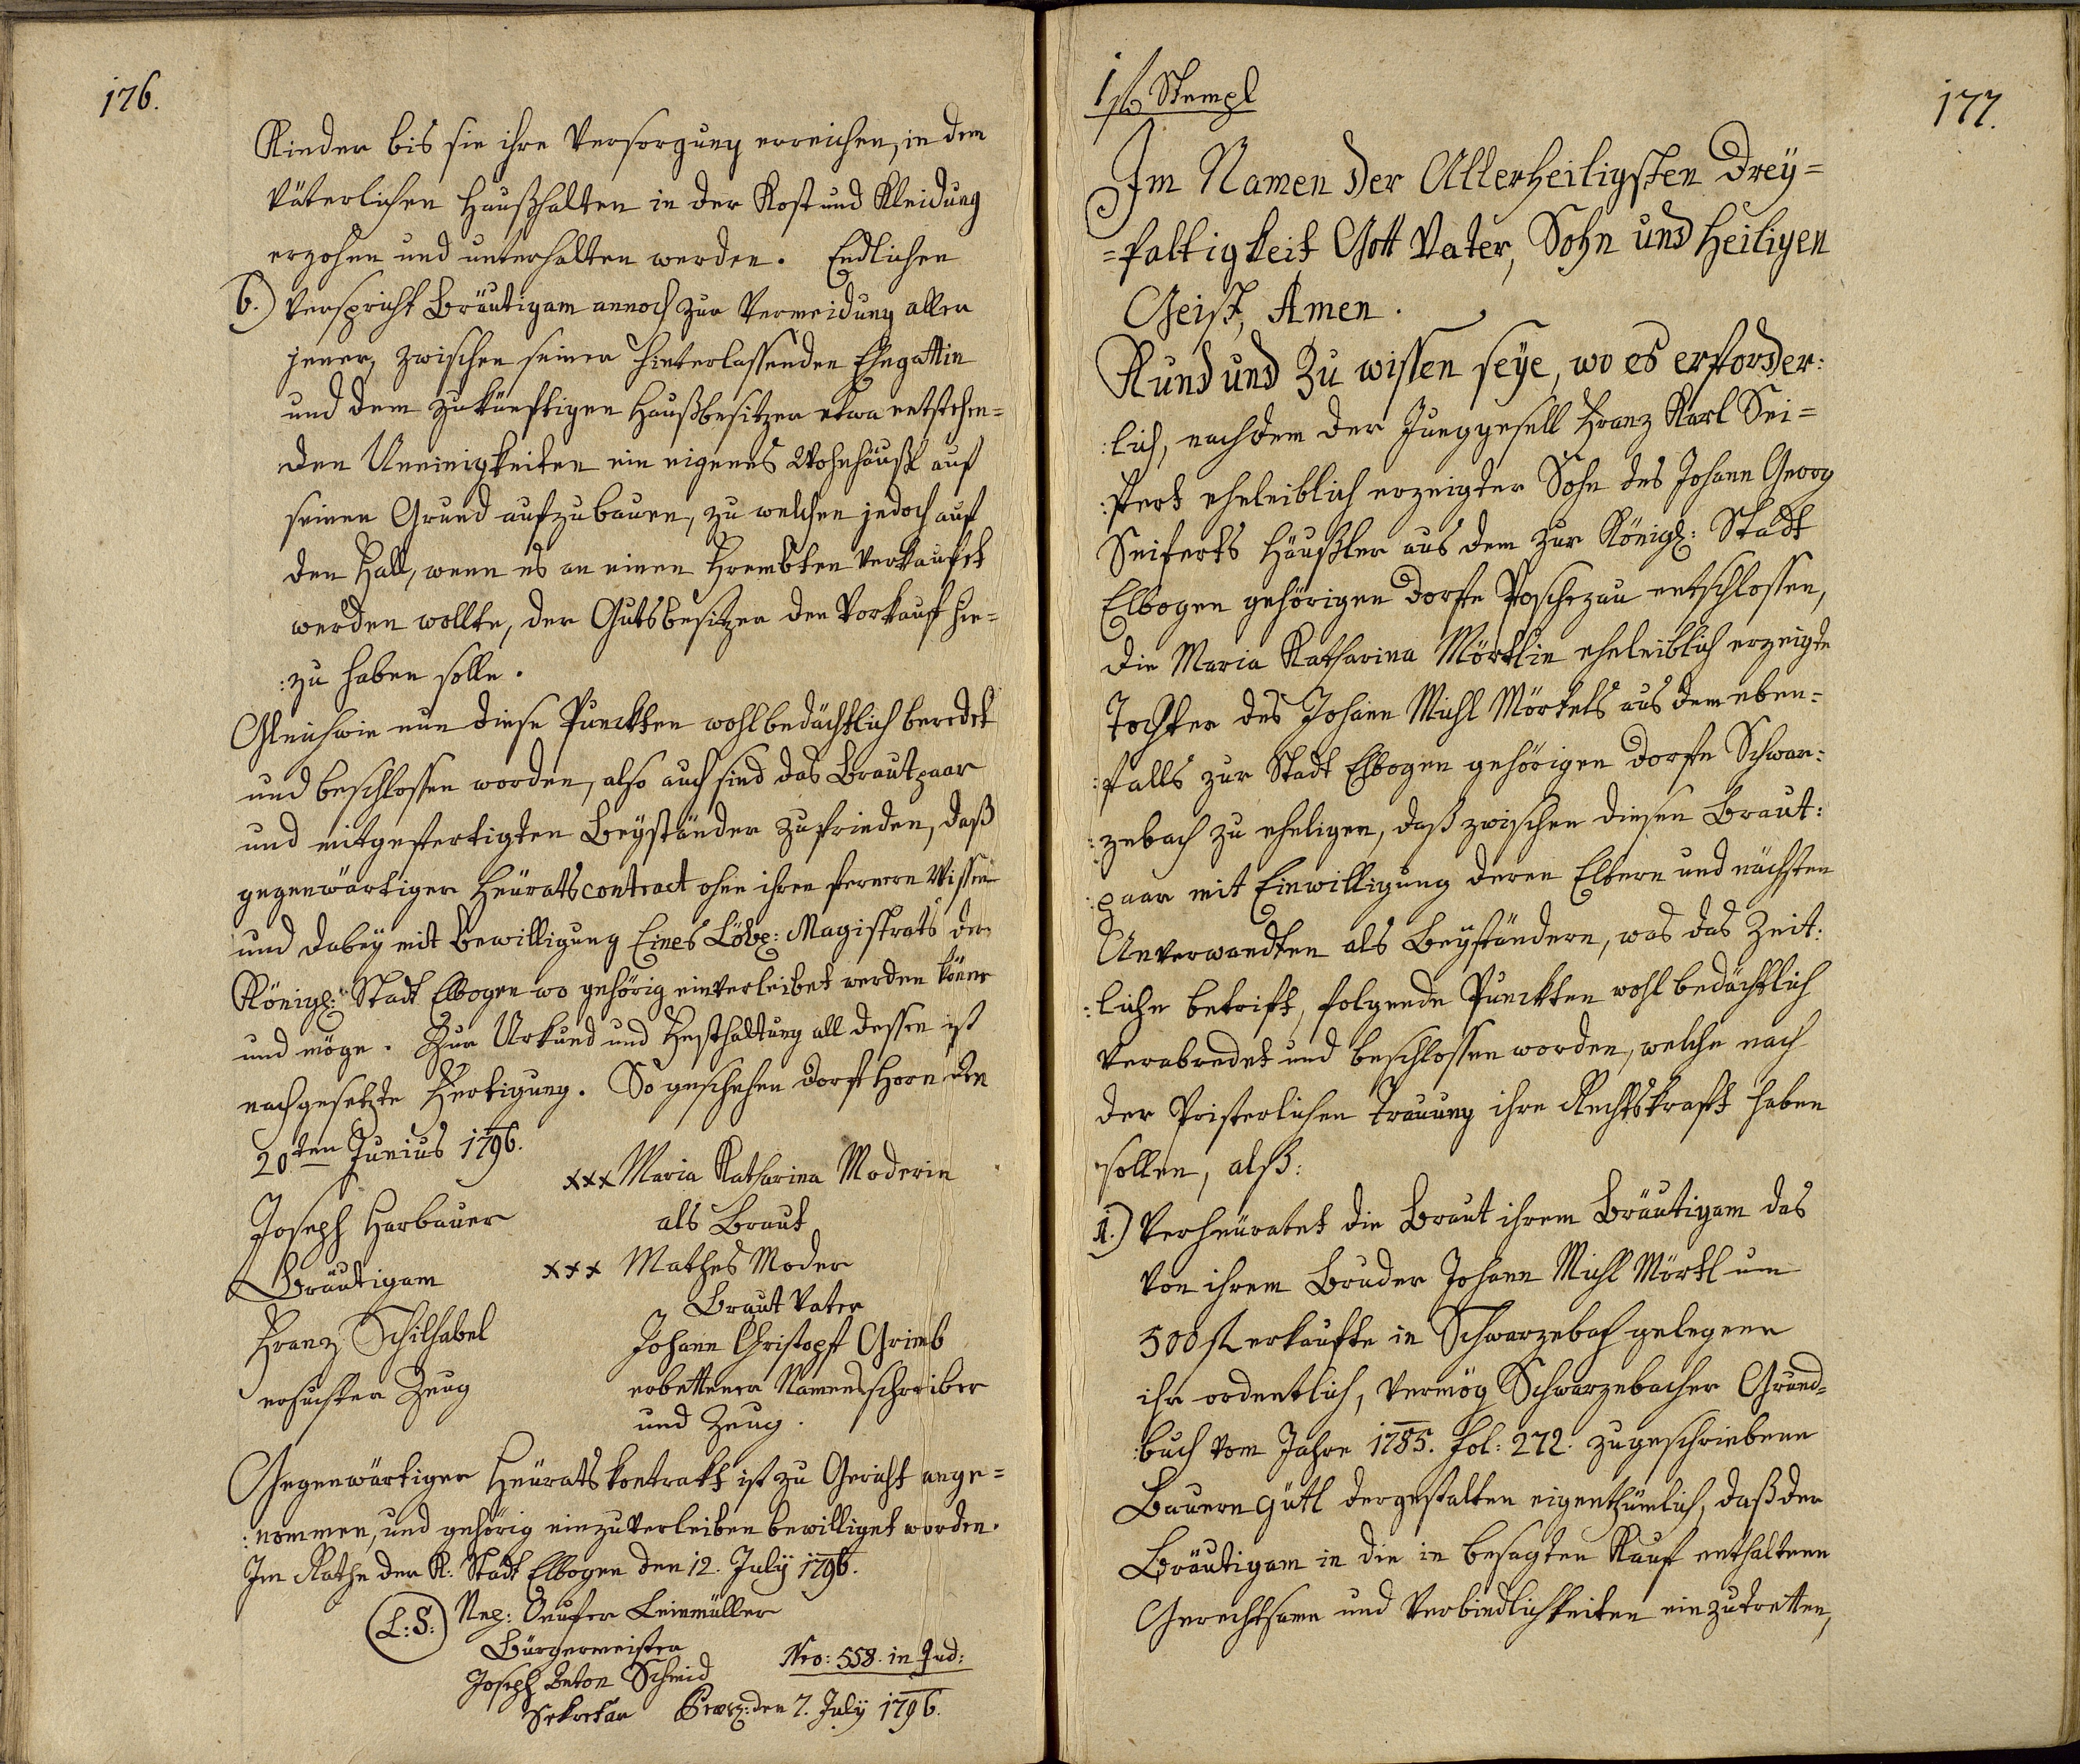 176.
Kinder bis sie ihre Versorgung erreichen, in dem
väterlichen Haußhalten in der Kost und Kleidung
erzohen und unterhalten werden. Endlichen
6.) Verspricht Bräutigam annoch zur Vermeidung aller
jener, zwischen seiner hinterlassenden Ehegattin
und dem zukünftigen Haußbesitzer etwa entstehen=
den Uneinigkeiten ein eigenes Wohnhäußl auf
seinen Grund aufzubauen, zu welchen jedoch auf
den Fall, wenn es an einen Frembten verkauft
werden wollte, der Gutsbesitzer den Vorkauf hie=
:zu haben solle.
Gleichwie nun diese Punckten wohlbedächtlich beredet
und beschlossen worden, also auch sind das Brautpaar
und mitgefertigten Beyständer zufrieden, daß
gegenwärtiger Heüratscontract ohne ihren fernern Wissen
und dabey mit Bewilligung Eines Löbl: Magistrats der
Königl: Stadt Elbogen wo gehörig einverleibet werden könne
und möge. Zur Urkund und Festhaltung all dessen ist
nachgesetzte Fertigung. So geschehen Dorf Horn den
20ten Junius 1796.
xxx Maria Katharina Moderin
als Braut
Joseph Harbauer
Bräutigam
xxx Mathes Moder
Braut Vater
Franz Schilhabel
ersuchter Zeug
Johann Christopf Grimb
erbettener Namensschreiber
und Zeug.
Gegenwärtiger Heüratskontrakt ist zu Gericht ange=
:nommen, und gehörig einzuverleiben bewilliget worden.
Im Rathe der K: Stadt Elbogen den 12. Julÿ 1796.
L:S:
Nep: Leinmüller
Bürgermeister
Joseph Anton Schmid
Sekretar
Nro: 558. in Jud:
den 7. Julÿ 1796.
177.
Stempl
Im Namen der Allerheiligsten Dreÿ=
=faltigkeit Gott Vater, Sohn und Heiligen
Geist, Amen.
Kund und Zu wissen seÿe, wo es erforder:
:lich, nachdem der Junggesell Franz Karl Sei=
:fert eheleiblich erzeigter Sohn des Johann Georg
Seiferts Häußler aus dem zur Königl: Stadt
Elbogen gehörigen Dorfe Poschezau entschlossen,
die Maria Katharina Mörtlin eheleiblich erzeigte
Tochter des Johann Michl Mörtels aus dem eben=
:falls zur Stadt Elbogen gehörigen Dorfe Schwar:
:zebach zu eheligen, daß zwischen diesen Braut:
:paar mit Einwilligung deren Eltern und nächsten
Anverwandten als Beyständern, was das Zeit:
:liche betrift, folgende Punckten wohl bedächtlich
verabredet und beschlossen worden, welche nach
der Pristerlichen Trauung ihre Rechtskraft haben
sollen, alß:
1.) Verheüratet die Braut ihrem Bräutigam das
von ihrem Bruder Johann Michl Mörtl um
500 fl erkaufte in Schwarzebach gelegene
ihr ordentlich, vermög Schwarzebacher Grund=
:buch vom Jahre 1785. Fol: 272. zugeschriebene
Bauern Gütl dergestalten eigenthümlich, daß der
Bräutigam in die in besagten Kauf enthaltene
Gerechtsame und Verbindlichkeiten einzutretten,